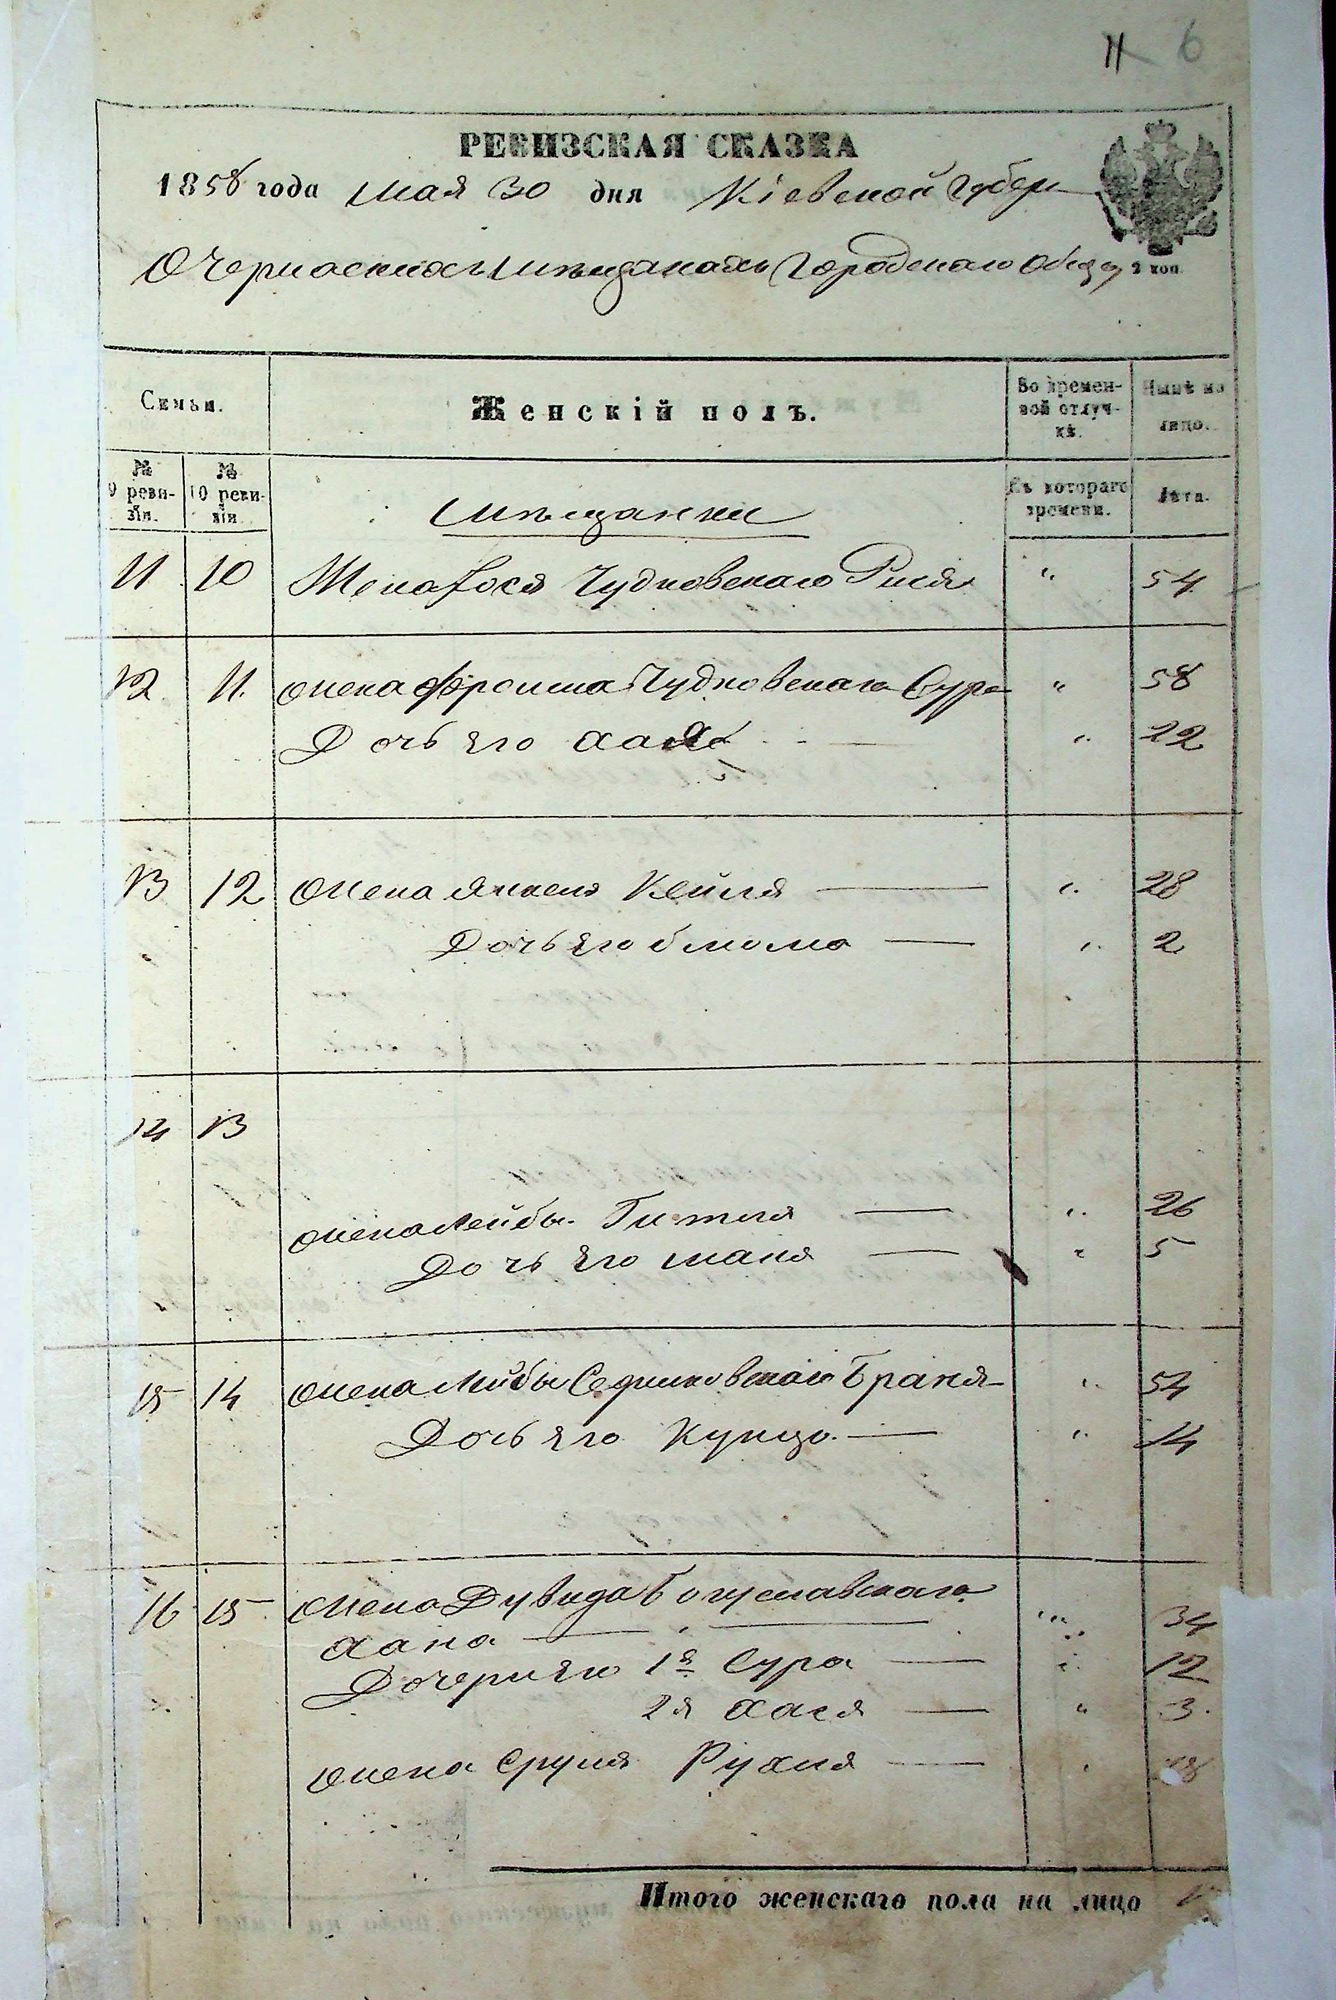 11 6
РЕВИЗСКАЯ СКАЗКА
1858 года мая 30 дня Кіевской Губер
О Черкасскихъ мѣщанахъ Городскаго Общ
2 коп.
Семьи.
Женскій полъ.
Во времен-
ной отлуч-
кѣ.
Нынѣ на
лицо.
№
9 реви-
зіи.
№
10 реви-
зіи
Съ котораго
времени.
Лѣта.
мѣщанки
11 10 Жена Чудновскаго Рися " 54
12 11. жена Фроима Чудновскаго Сура " 58
Дочь Его Хая " 22
13 12 жена Янкеля Кейля — " 28
Дочь Его — " 2
14 13
жена Лейбы Гитля — " 26
Дочь Его маня — " 5
15 14 жена Лейбы Браня " 54
Дочь Его Кунцо — " 14
16 15 жена Дувида Богуславскаго
Хана — " 34
Дочери Его 1я Сура — " 12
2я Хася — " 3.
жена Сруля Рухля — "
Итого женскаго пола на лицо